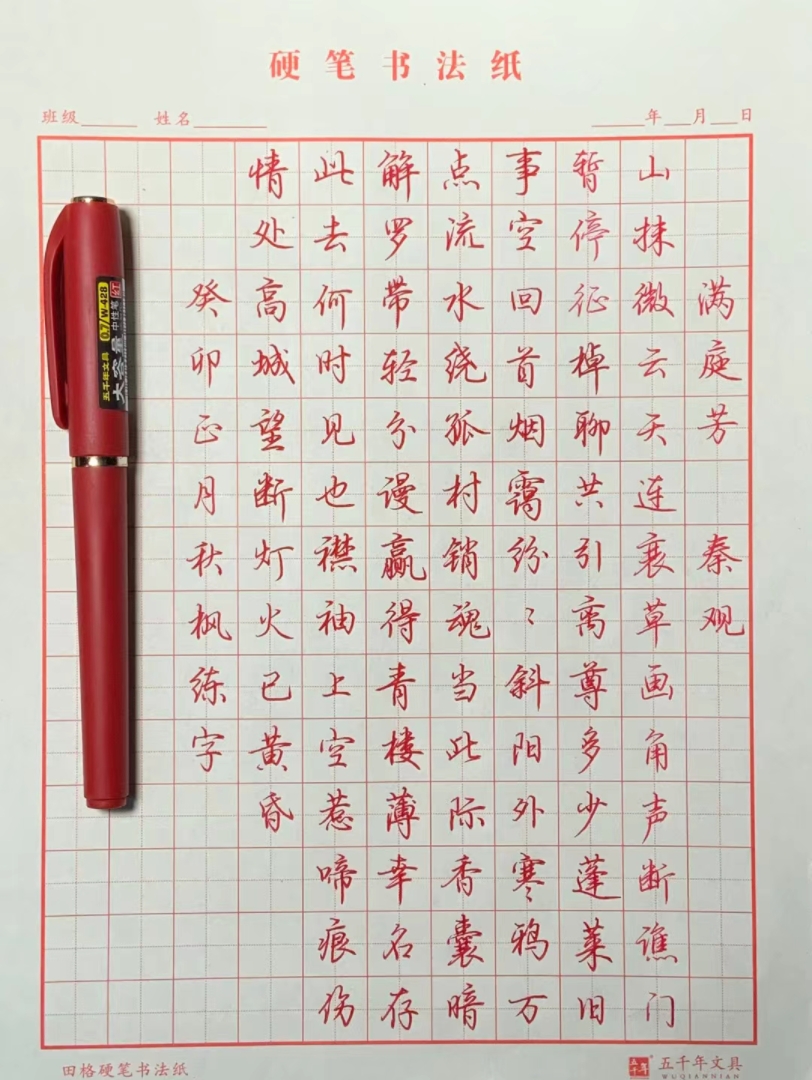 硬笔书法纸
班级 姓名 年 月 日
满庭芳 秦观
山抹微云天连衰草画角声断谯门
暂停征棹聊共引离尊多少蓬莱旧
事空回首烟霭纷〻斜阳外寒鸦万
点流水绕孤村销魂当此际香囊暗
解罗带轻分谩赢得青楼薄幸名存
此去何时见也襟袖上空惹啼痕伤
情处高城望断灯火已黄昏
癸卯正月秋枫练字
五千年文具 0.7/W-428
大容量 中性笔 红
田格硬笔书法纸
五千年文具
WUQIANNIAN